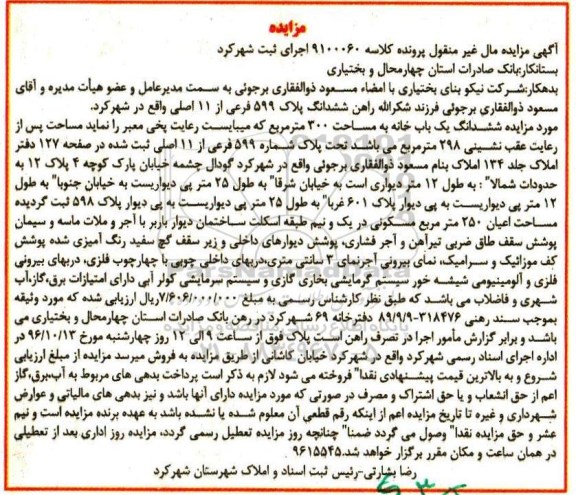 مزایده
آگهی مزایده مال غیر منقول پرونده کلاسه ۹۱۰۰۰۶۰ اجرای ثبت شهرکرد
بستانکار:بانک صادرات استان چهارمحال و بختیاری
بدهکار:شرکت نیکو بنای بختیاری با امضاء مسعود ذوالفقاری بروجوئی به سمت مدیرعامل و عضو هیأت مدیره و آقای
مسعود ذوالفقاری بروجوئی فرزند شکرالله راهن ششدانگ پلاک ۵۹۹ فرعی از ۱۱ اصلی واقع در شهرکرد.
مورد مزایده ششدانگ یک باب خانه به مساحت ۳۰۰ مترمربع که میبایست رعایت پخی معبر را نماید مساحت پس از
رعایت عقب نشینی ۲۹۸ مترمربع می باشد تحت پلاک شماره ۵۹۹ فرعی از ۱۱ اصلی ثبت شده در صفحه ۱۲۷ دفتر
املاک جلد ۱۳۴ املاک بنام مسعود ذوالفقاری بروجوئی واقع در شهرکرد گودال چشمه خیابان پارک کوچه ۴ پلاک ۱۲ به
حدودات شمالا": به طول ۱۲ متر دیواری است به خیابان شرقا" به طول ۲۵ متر پی دیواریست به خیابان جنوبا" به طول
۱۲ متر پی دیواریست به پی دیوار پلاک ۶۰۱ غربا" به طول ۲۵ متر پی دیواریست به پی دیوار پلاک ۵۹۸ ثبت گردیده
مساحت اعیان ۲۵۰ متر مربع مسکونی در یک و نیم طبقه اسکلت ساختمان دیوار باربر با آجر و ملات ماسه و سیمان
پوشش سقف طاق ضربی تیرآهن و آجر فشاری، پوشش دیوارهای داخلی و زیر سقف گچ سفید رنگ آمیزی شده پوشش
کف موزائیک و سرامیک، نمای بیرونی آجرنمای ۳ سانتی متری،دربهای داخلی چوبی با چهارچوب فلزی، دربهای بیرونی
فلزی و آلومینیومی شیشه خور سیستم گرمایشی بخاری گازی و سیستم سرمایشی کولر آبی دارای امتیازات برق،گاز،آب
شهری و فاضلاب می باشد که طبق نظر کارشناس رسمی به مبلغ ۷/۶۰۶/۰۰۰/۰۰۰ریال ارزیابی شده که مورد وثیقه
بموجب سند رهنی ۳۱۸۴۷۶-۸۹/۹/۹ دفترخانه ۶۹ شهرکرد در رهن بانک صادرات استان چهارمحال و بختیاری می
باشد و برابر گزارش مأمور اجرا در تصرف راهن است پلاک فوق از ساعت ۹ الی ۱۲ روز چهارشنبه مورخ ۹۶/۱۰/۱۳ در
اداره اجرای اسناد رسمی شهرکرد واقع در شهرکرد خیابان کاشانی از طریق مزایده به فروش میرسد مزایده از مبلغ ارزیابی
شروع و به بالاترین قیمت پیشنهادی نقدا" فروخته می شود لازم به ذکر است پرداخت بدهی های مربوط به آب،برق،گاز
اعم از حق انشعاب و یا حق اشتراک و مصرف در صورتی که مورد مزایده دارای آنها باشد و نیز بدهی های مالیاتی و عوارض
شهرداری و غیره تا تاریخ مزایده اعم از اینکه رقم قطعی آن معلوم شده یا نشده باشد به عهده برنده مزایده است و نیم
عشر و حق مزایده نقدا" وصول می گردد ضمنا" چنانچه روز مزایده تعطیل رسمی گردد، مزایده روز اداری بعد از تعطیلی
در همان ساعت و مکان مقرر برگزار خواهد شد.۹۶۱۵۵۴۵
رضا بشارتی-رئیس ثبت اسناد و املاک شهرستان شهرکرد